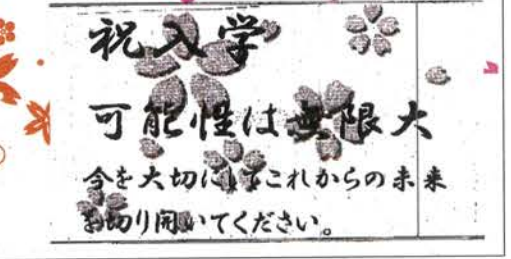 祝入学
可能性は無限大
今を大切にしてこれからの未来
を切り開いてください。